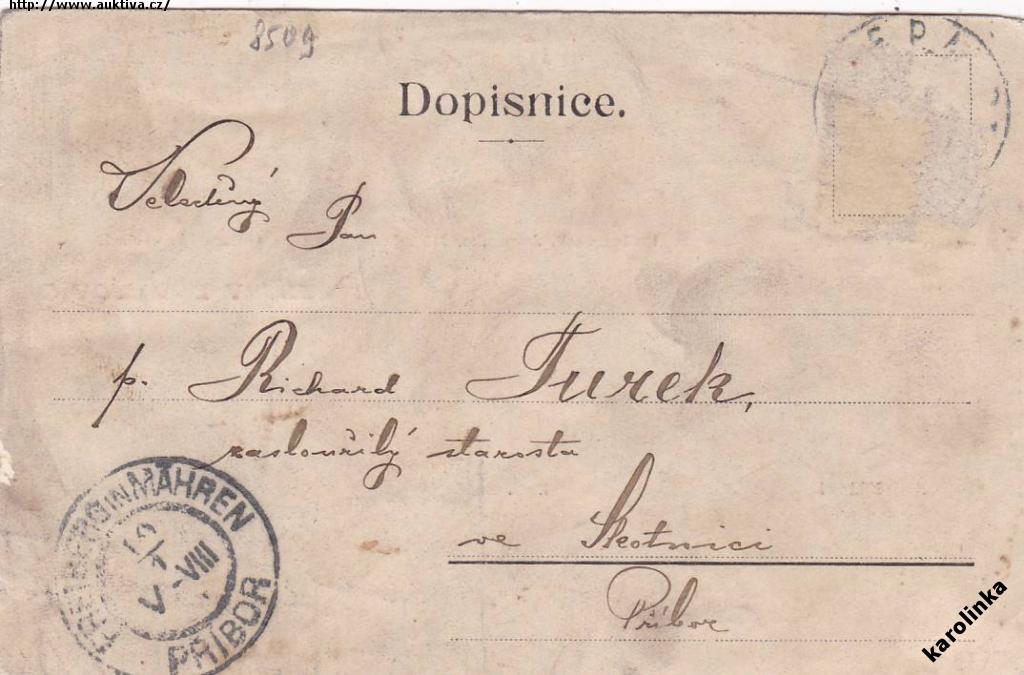 http://www.auktiva.cz/
8509
Dopisnice.
Velectěný
Pan
p. Richard Turek,
zasloužilý starosta
ve Skotnici
Příbor
FREIBERG IN MÄHREN
V-VIII
PŘÍBOR
karolinka